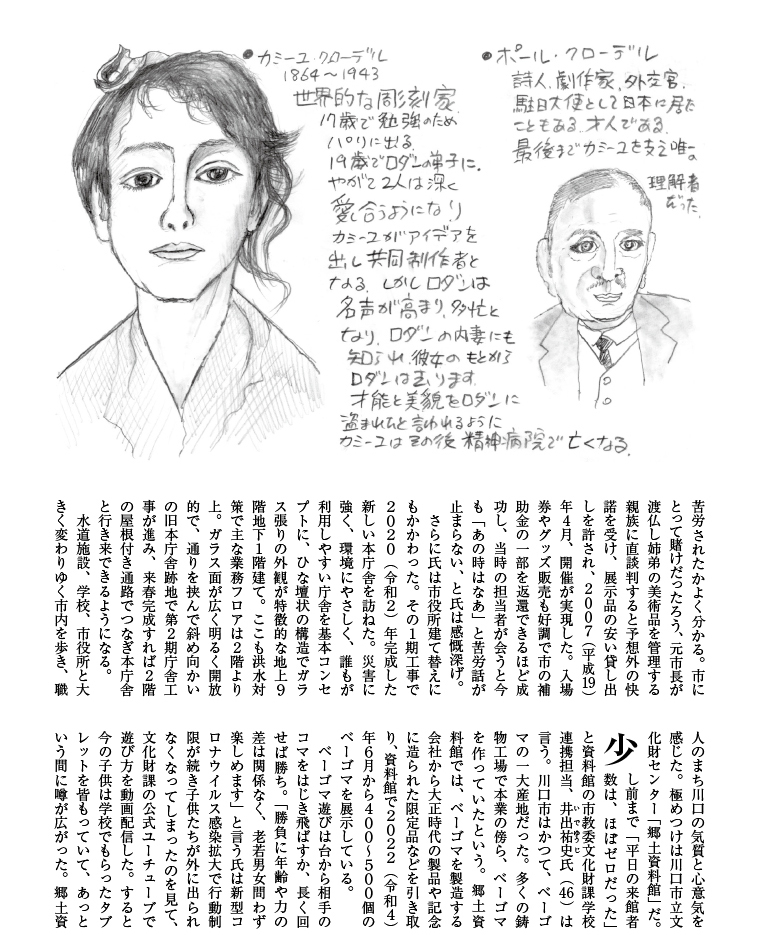 ●カミーユ・クローデル
1864〜1943
世界的な彫刻家。
17歳で勉強のため
パリに出る。
19歳でロダンの弟子に。
やがて2人は深く
愛し合うようになり
カミーユがアイデアを
出し共同制作者と
なる。しかしロダンは
名声が高まり、多忙と
なり、ロダンの内妻にも
知られ、彼女のもとから
ロダンは去ります。
才能と美貌をロダンに
盗まれたと言われるように
カミーユはその後精神病院で亡くなる。
●ポール・クローデル
詩人、劇作家、外交官。
駐日大使として日本に居た
こともある才人である。
最後までカミーユを支え唯一の
理解者
だった。
苦労されたかよく分かる。市に
とって賭けだったろう、元市長が
渡仏し姉弟の美術品を管理する
親族に直談判すると予想外の快
諾を受け、展示品の安い貸し出
しを許され、2007（平成19）
年4月、開催が実現した。入場
券やグッズ販売も好調で市の補
助金の一部を返還できるほど成
功し、当時の担当者が会うと今
も「あの時はなあ」と苦労話が
止まらない、と氏は感慨深げ。
さらに氏は市役所建て替えに
もかかわった。その1期工事で
2020（令和2）年完成した
新しい本庁舎を訪ねた。災害に
強く、環境にやさしく、誰もが
利用しやすい庁舎を基本コンセ
プトに、ひな壇状の構造でガラ
ス張りの外観が特徴的な地上9
階地下1階建て。ここも洪水対
策で主な業務フロアは2階より
上。ガラス面が広く明るく開放
的で、通りを挟んで斜め向かい
の旧本庁舎跡地で第2期庁舎工
事が進み、来春完成すれば2階
の屋根付き通路でつなぎ本庁舎
と行き来できるようになる。
水道施設、学校、市役所と大
きく変わりゆく市内を歩き、職
人のまち川口の気質と心意気を
感じた。極めつけは川口市立文
化財センター「郷土資料館」だ。
少し前まで「平日の来館者
数は、ほぼゼロだった」
と資料館の市教委文化財課学校
連携担当、井出祐史氏（46）は
いでゆうじ
言う。川口市はかつて、ベーゴ
マの一大産地だった。多くの鋳
物工場で本業の傍ら、ベーゴマ
を作っていたという。郷土資
料館では、ベーゴマを製造する
会社から大正時代の製品や記念
に造られた限定品などを引き取
り、資料館で2022（令和4）
年6月から400〜500個の
ベーゴマを展示している。
ベーゴマ遊びは台から相手の
コマをはじき飛ばすか、長く回
せば勝ち。「勝負に年齢や力の
差は関係なく、老若男女問わず
楽しめます」と言う氏は新型コ
ロナウイルス感染拡大で行動制
限が続き子供たちが外に出られ
なくなってしまったのを見て、
文化財課の公式ユーチューブで
遊び方を動画配信した。すると
今の子供は学校でもらったタブ
レットを皆もっていて、あっと
いう間に噂が広がった。郷土資